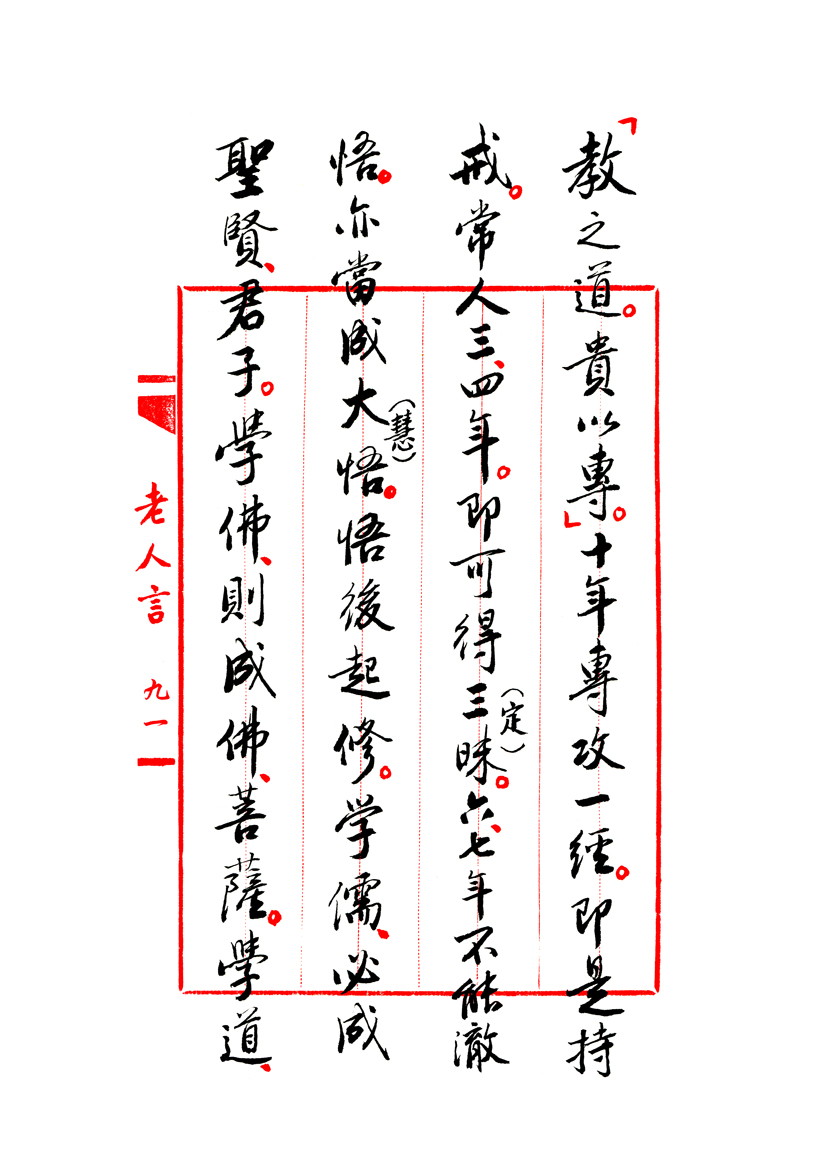 「教之道。貴以專。」十年專攻一經。即是持
戒。常人三、四年。即可得三昧(定)。六、七年不能澈
悟。亦當成大悟(慧)。悟後起修。学儒、必成
聖賢、君子。學佛、則成佛、菩薩。學道、
老人言 九一